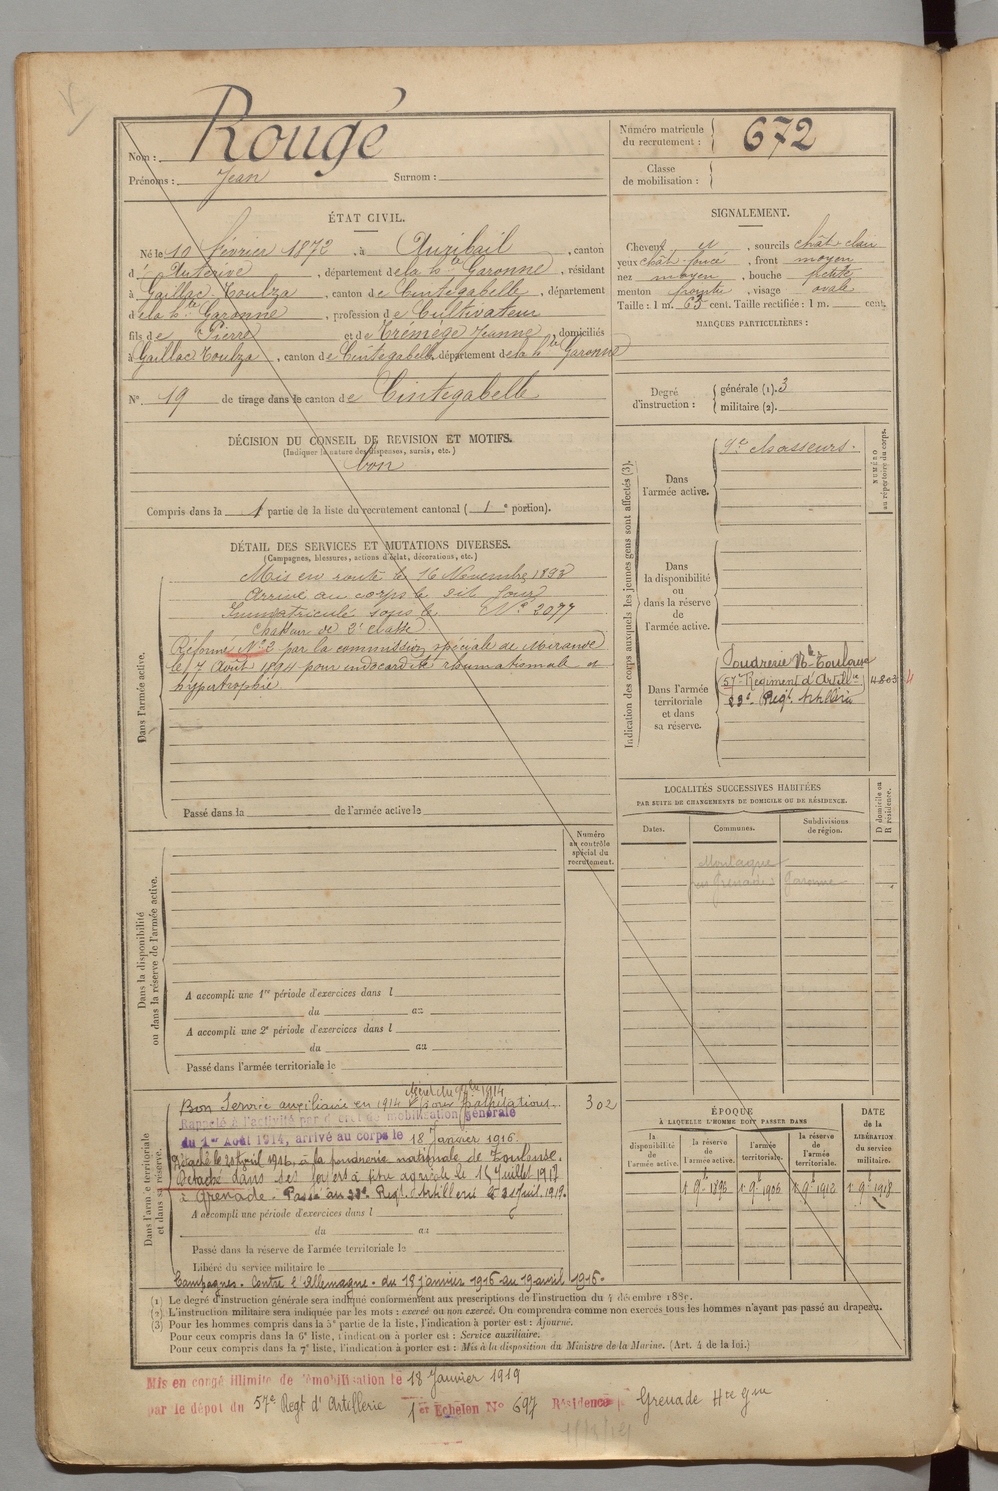 Nom : Rougé
Prénoms : Jean Surnom :
Numéro matricule du recrutement : 672
Classe de mobilisation :
ÉTAT CIVIL.
Né le 10 février 1872, à Auribail, canton
d'Auterive, département de la Hte Garonne, résidant
à Gaillac-Toulza, canton de Cintegabelle, département
de la Hte Garonne, profession de Cultivateur
fils de Pierre et de Trémège Jeanne, domiciliés
à Gaillac Toulza, canton de Cintegabelle, département de la Hte Garonne
No. 19 de tirage dans le canton de Cintegabelle
SIGNALEMENT.
Cheveux et, sourcils chât clair
yeux chât foncé, front moyen
nez moyen, bouche petite
menton pointu, visage ovale
Taille : 1 m. 63 cent. Taille rectifiée : 1 m. cent.
MARQUES PARTICULIÈRES :
Degré d'instruction : générale (1). 3
militaire (2).
DÉCISION DU CONSEIL DE REVISION ET MOTIFS.
(Indiquer la nature des dispenses, sursis, etc.)
bon
Compris dans la 1 partie de la liste du recrutement cantonal ( 1 e portion).
DÉTAIL DES SERVICES ET MUTATIONS DIVERSES.
(Campagnes, blessures, actions d'éclat, décorations, etc.)
Dans l'armée active.
Mis en route le 16 Novembre 1893
Arrivé au corps le dit jour
Immatriculé sous le No 2077
Chasseur de 2e classe
Réformé No 2 par la commission spéciale de Mirande
le 7 Août 1894 pour endocardite rhumatismale et
hypertrophie
Passé dans la de l'armée active le
Indication des corps auxquels les jeunes gens sont affectés (3).
NUMÉRO au répertoire du corps.
Dans l'armée active.
9e Chasseurs.
Dans la disponibilité ou dans la réserve de l'armée active.
Dans l'armée territoriale et dans sa réserve.
Poudrerie Nle Toulouse
57e Régiment d'Artillie 4803
23e Regt. Artillerie
LOCALITÉS SUCCESSIVES HABITÉES
PAR SUITE DE CHANGEMENTS DE DOMICILE OU DE RÉSIDENCE.
D domicile ou R résidence.
Dates. Communes. Subdivisions de région.
Garonne
Numéro au contrôle spécial du recrutement.
Dans la disponibilité ou dans la réserve de l'armée active.
A accompli une 1re période d'exercices dans l
du au
A accompli une 2e période d'exercices dans l
du au
Passé dans l'armée territoriale le
Dans l'armée territoriale et dans sa réserve.
Bon Service auxiliaire en 1914 302
Rappelé à l'activité par décret de mobilisation générale
du 1er Août 1914, arrivé au corps le 18 Janvier 1916.
Détaché le 20 avril 1916 à la poudrerie nationale de Toulouse.
Détaché dans ses foyers à titre agricole le 15 Juillet 1917
à Grenade. Passé au 23e Regt. Artillerie le 2 Juil. 1919.
A accompli une période d'exercices dans l
du au
Passé dans la réserve de l'armée territoriale le
Libéré du service militaire le
Campagnes. Contre l'Allemagne. du 18 janvier 1916 au 19 avril 1916.
ÉPOQUE
À LAQUELLE L'HOMME DOIT PASSER DANS
DATE de la LIBÉRATION du service militaire.
la disponibilité de l'armée active. la réserve de l'armée active. l'armée territoriale. la réserve de l'armée territoriale.
(1) Le degré d'instruction générale sera indiqué conformément aux prescriptions de l'instruction du 4 décembre 1889.
(2) L'instruction militaire sera indiquée par les mots : exercé ou non exercé. On comprendra comme non exercés tous les hommes n'ayant pas passé au drapeau.
(3) Pour les hommes compris dans la 5e partie de la liste, l'indication à porter est : Ajourné.
Pour ceux compris dans la 6e liste, l'indication à porter est : Service auxiliaire.
Pour ceux compris dans la 7e liste, l'indication à porter est : Mis à la disposition du Ministre de la Marine. (Art. 4 de la loi.)
Mis en congé illimité de démobilisation le 18 Janvier 1919
par le dépôt du 57e Regt d'Artillerie 1er Echelon No 697 Résidence Grenade Hte Gne